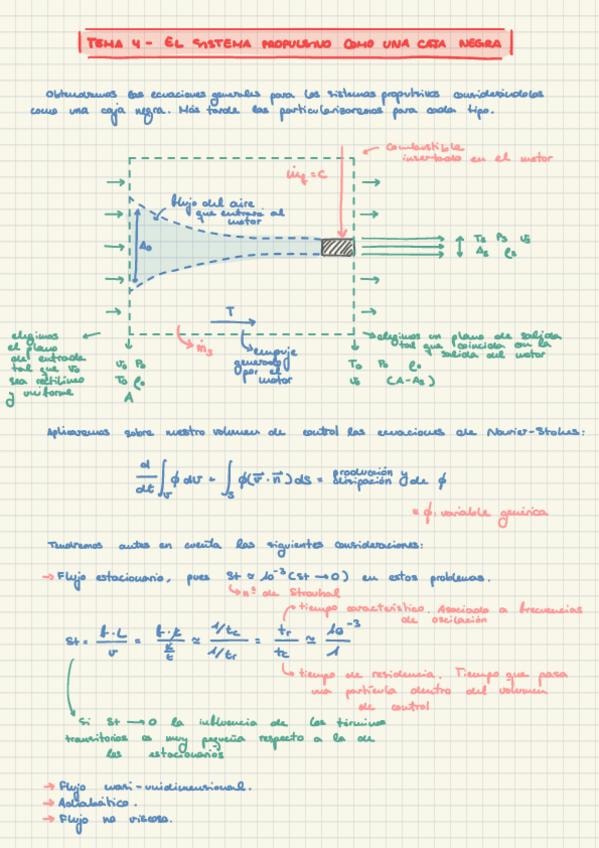 TEMA 4 - EL SISTEMA PROPULSIVO COMO UNA CAJA NEGRA
Obtendremos las ecuaciones generales para los sistemas propulsivos considerándolos
como una caja negra. Más tarde las particularizaremos para cada tipo.
combustible
insertado en el motor
ṁf = c
flujo del aire
que entrará al
motor
A₀
Ts Ps vs
As ρs
T
elegimos
el plano
de entrada
tal que v₀
sea rectilíneo
y uniforme
ṁs
empuje
generado
por el
motor
elegimos un plano de salida
tal que coincida con la
salida del motor
v₀ P₀
T₀ ρ₀
A
T₀ P₀ ρ₀
v₀ (A-As)
Aplicaremos sobre nuestro volumen de control las ecuaciones de Navier-Stokes:
d/dt ∫v φ dv + ∫s φ(v⃗ · n⃗) ds = producción y disipación de φ
φ: variable genérica
Tendremos antes en cuenta las siguientes consideraciones:
→ Flujo estacionario, pues St ≈ 10⁻³ (St → 0) en estos problemas.
nº de Strouhal
tiempo característico. Asociado a frecuencias
de oscilación
St = f·L/v = f·L/(L/t) ≈ (1/tc)/(1/tr) = tr/tc ≈ 10⁻³/1
tiempo de residencia. Tiempo que pasa
una partícula dentro del volumen
de control
Si St → 0 la influencia de los términos
transitorios es muy pequeña respecto a la de
los estacionarios
→ Flujo cuasi-unidimensional.
→ Adiabático.
→ Flujo no viscoso.